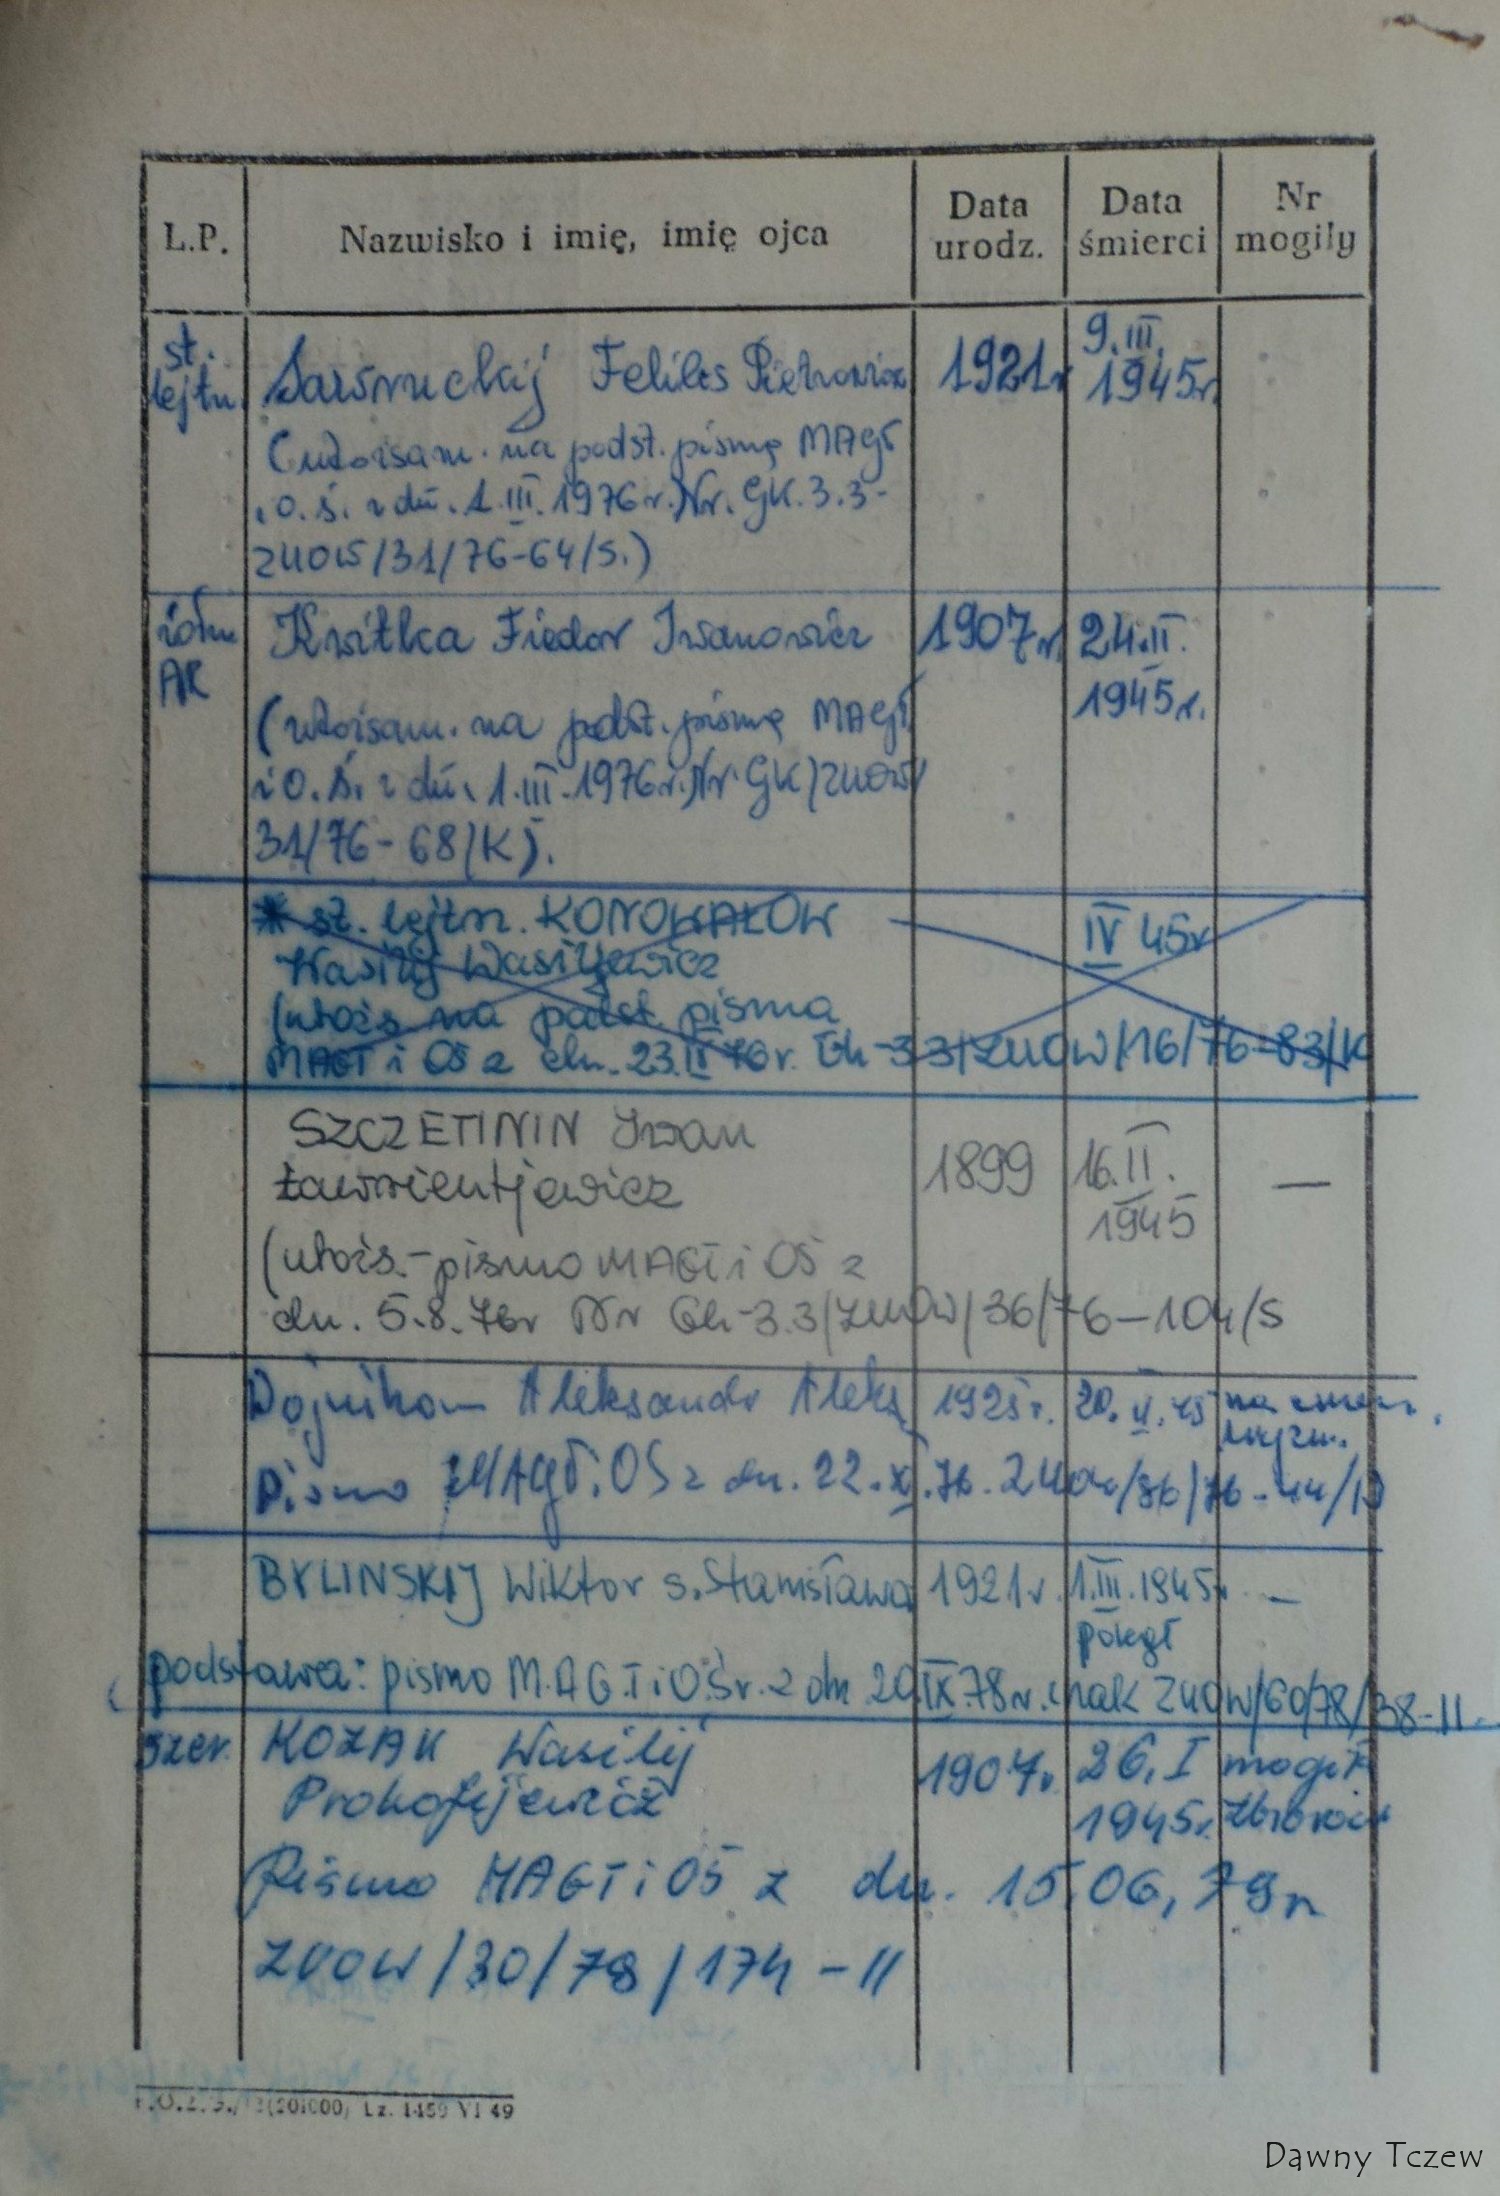 L.P. Nazwisko i imię, imię ojca Data urodz. Data śmierci Nr mogiły
st. lejtn. Feliks Pietrowicz 1921r 9.III. 1945r.
na podst. pismę MAGT
i O.Ś. z dń. 1.III.1976r. Nr. GK.3.3-
ZUOW/31/76-64/S.)
żołn AR Kwitka Fiedor Iwanowicz 1907r. 24.II. 1945r.
(utożsam. na podst. pismę MAGT
i O.Ś. z dń. 1.III.1976r. Nr. GK/ZUOW/
31/76-68/K).
st. lejtn. KONOWAŁOW IV 45r
Wasilij Wasiljewicz
(utożs na podst pisma
MAGT i OŚ z dn. 23.IV 76r. Gk-3 3/ZUOW/16/76-83/K
SZCZETININ Iwan 1899 16.II. 1945 —
Ławrientjewicz
(utożs.-pismo MAGT i OŚ z
dn. 5.8.76r Nr Gk-3.3/ZUOW/36/76-104/S
Aleksandr Aleks. 1925r. 20.II.45 na
Pismo MAGT i OŚ z dn. 22.XI.76. ZUOW/86/76-44/D
BYLINSKIJ Wiktor s. Stanisława 1921r. 1.III.1945r —
poległ
podstawa: pismo M.A.G.T i O.Śr. z dn 20.IX.78r. znak ZUOW/60/78/38-II.
szer. KOZAK Wasilij 1907r. 26.I 1945r. mogiła zbiorowa
Prokofijewicz
Pismo MAGT i OŚ z dn. 15.06.79r
ZUOW/30/78/174-II
Lz. 1459 VI 49
Dawny Tczew